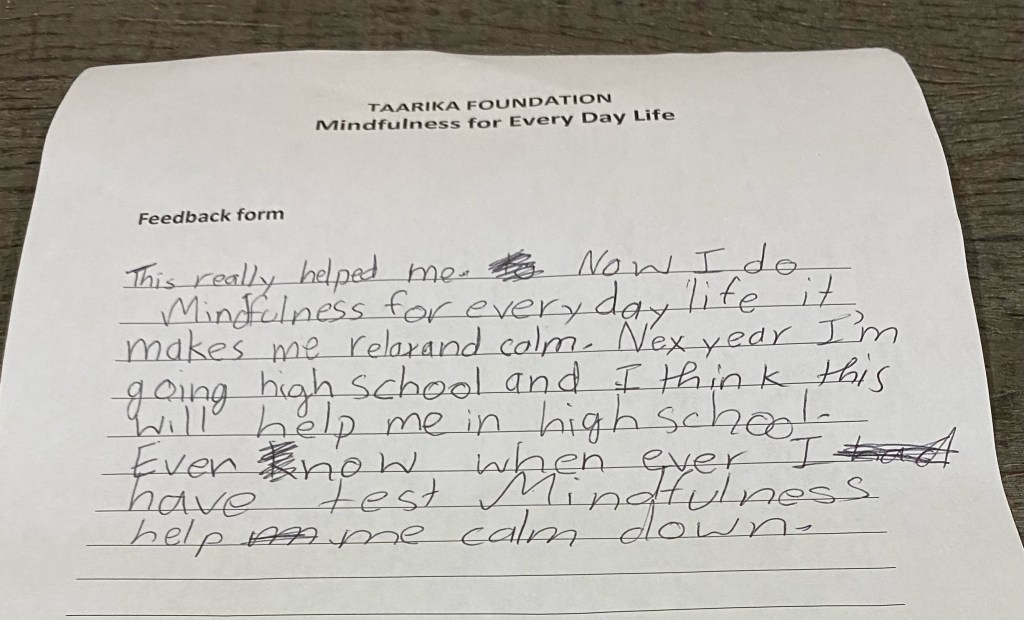 TAARIKA FOUNDATION
Mindfulness for Every Day Life
Feedback form
This really helped me. Now I do
Mindfulness for every day life it
makes me relaxand calm. Nex year I'm
going high school and I think this
will help me in high school.
Even now when ever I
have test Mindfulness
help me calm down.